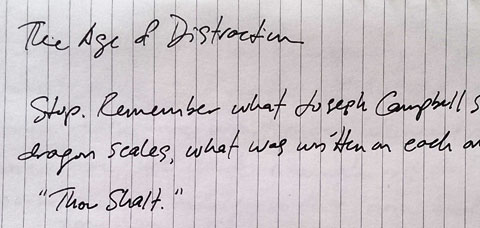 The Age of Distraction
Stop. Remember what Joseph Campbell s
dragon scales, what was written on each on
"Thou Shalt."